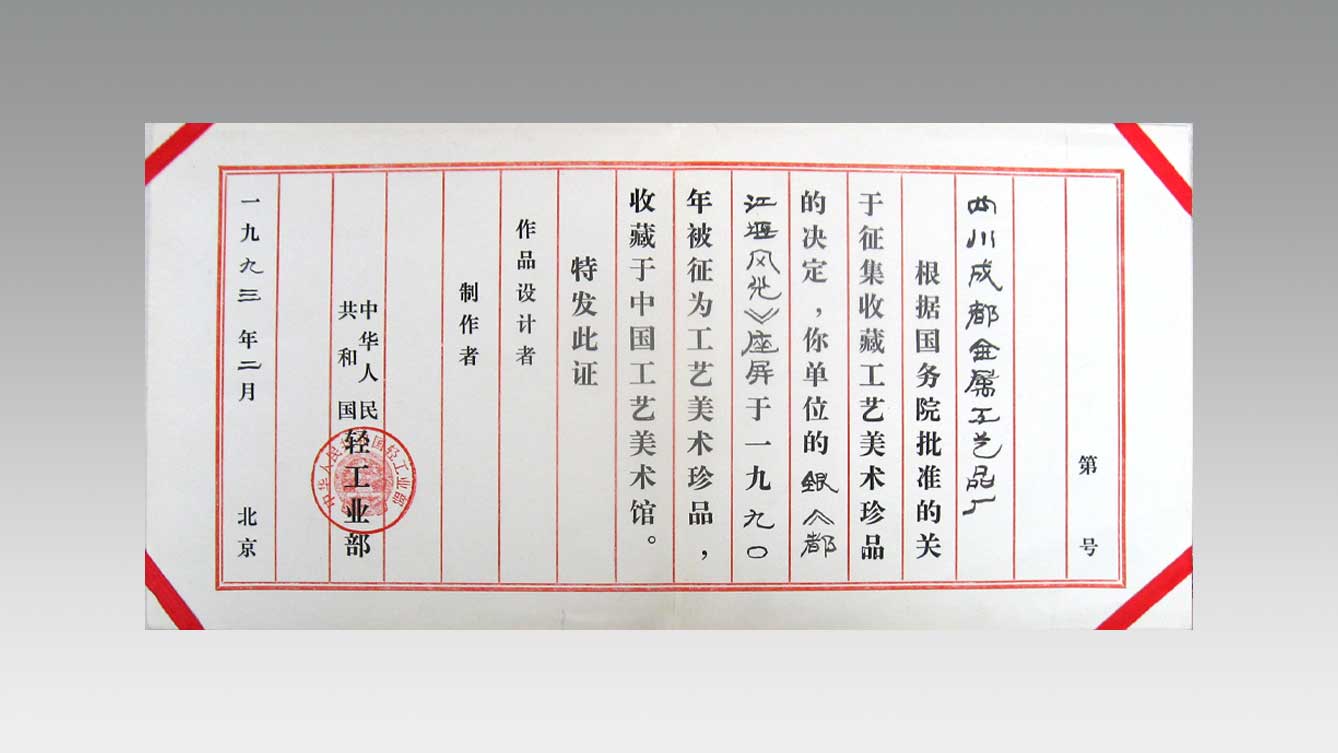 第 号
四川成都金属工艺品厂
根据国务院批准的关
于征集收藏工艺美术珍品
的决定，你单位的银《都
江堰风光》座屏于一九九〇
年被征为工艺美术珍品，
收藏于中国工艺美术馆。
特发此证
作品设计者
制作者
中华人民
共和国
轻工业部
中华人民共和国轻工业部
一九九三年二月 北京